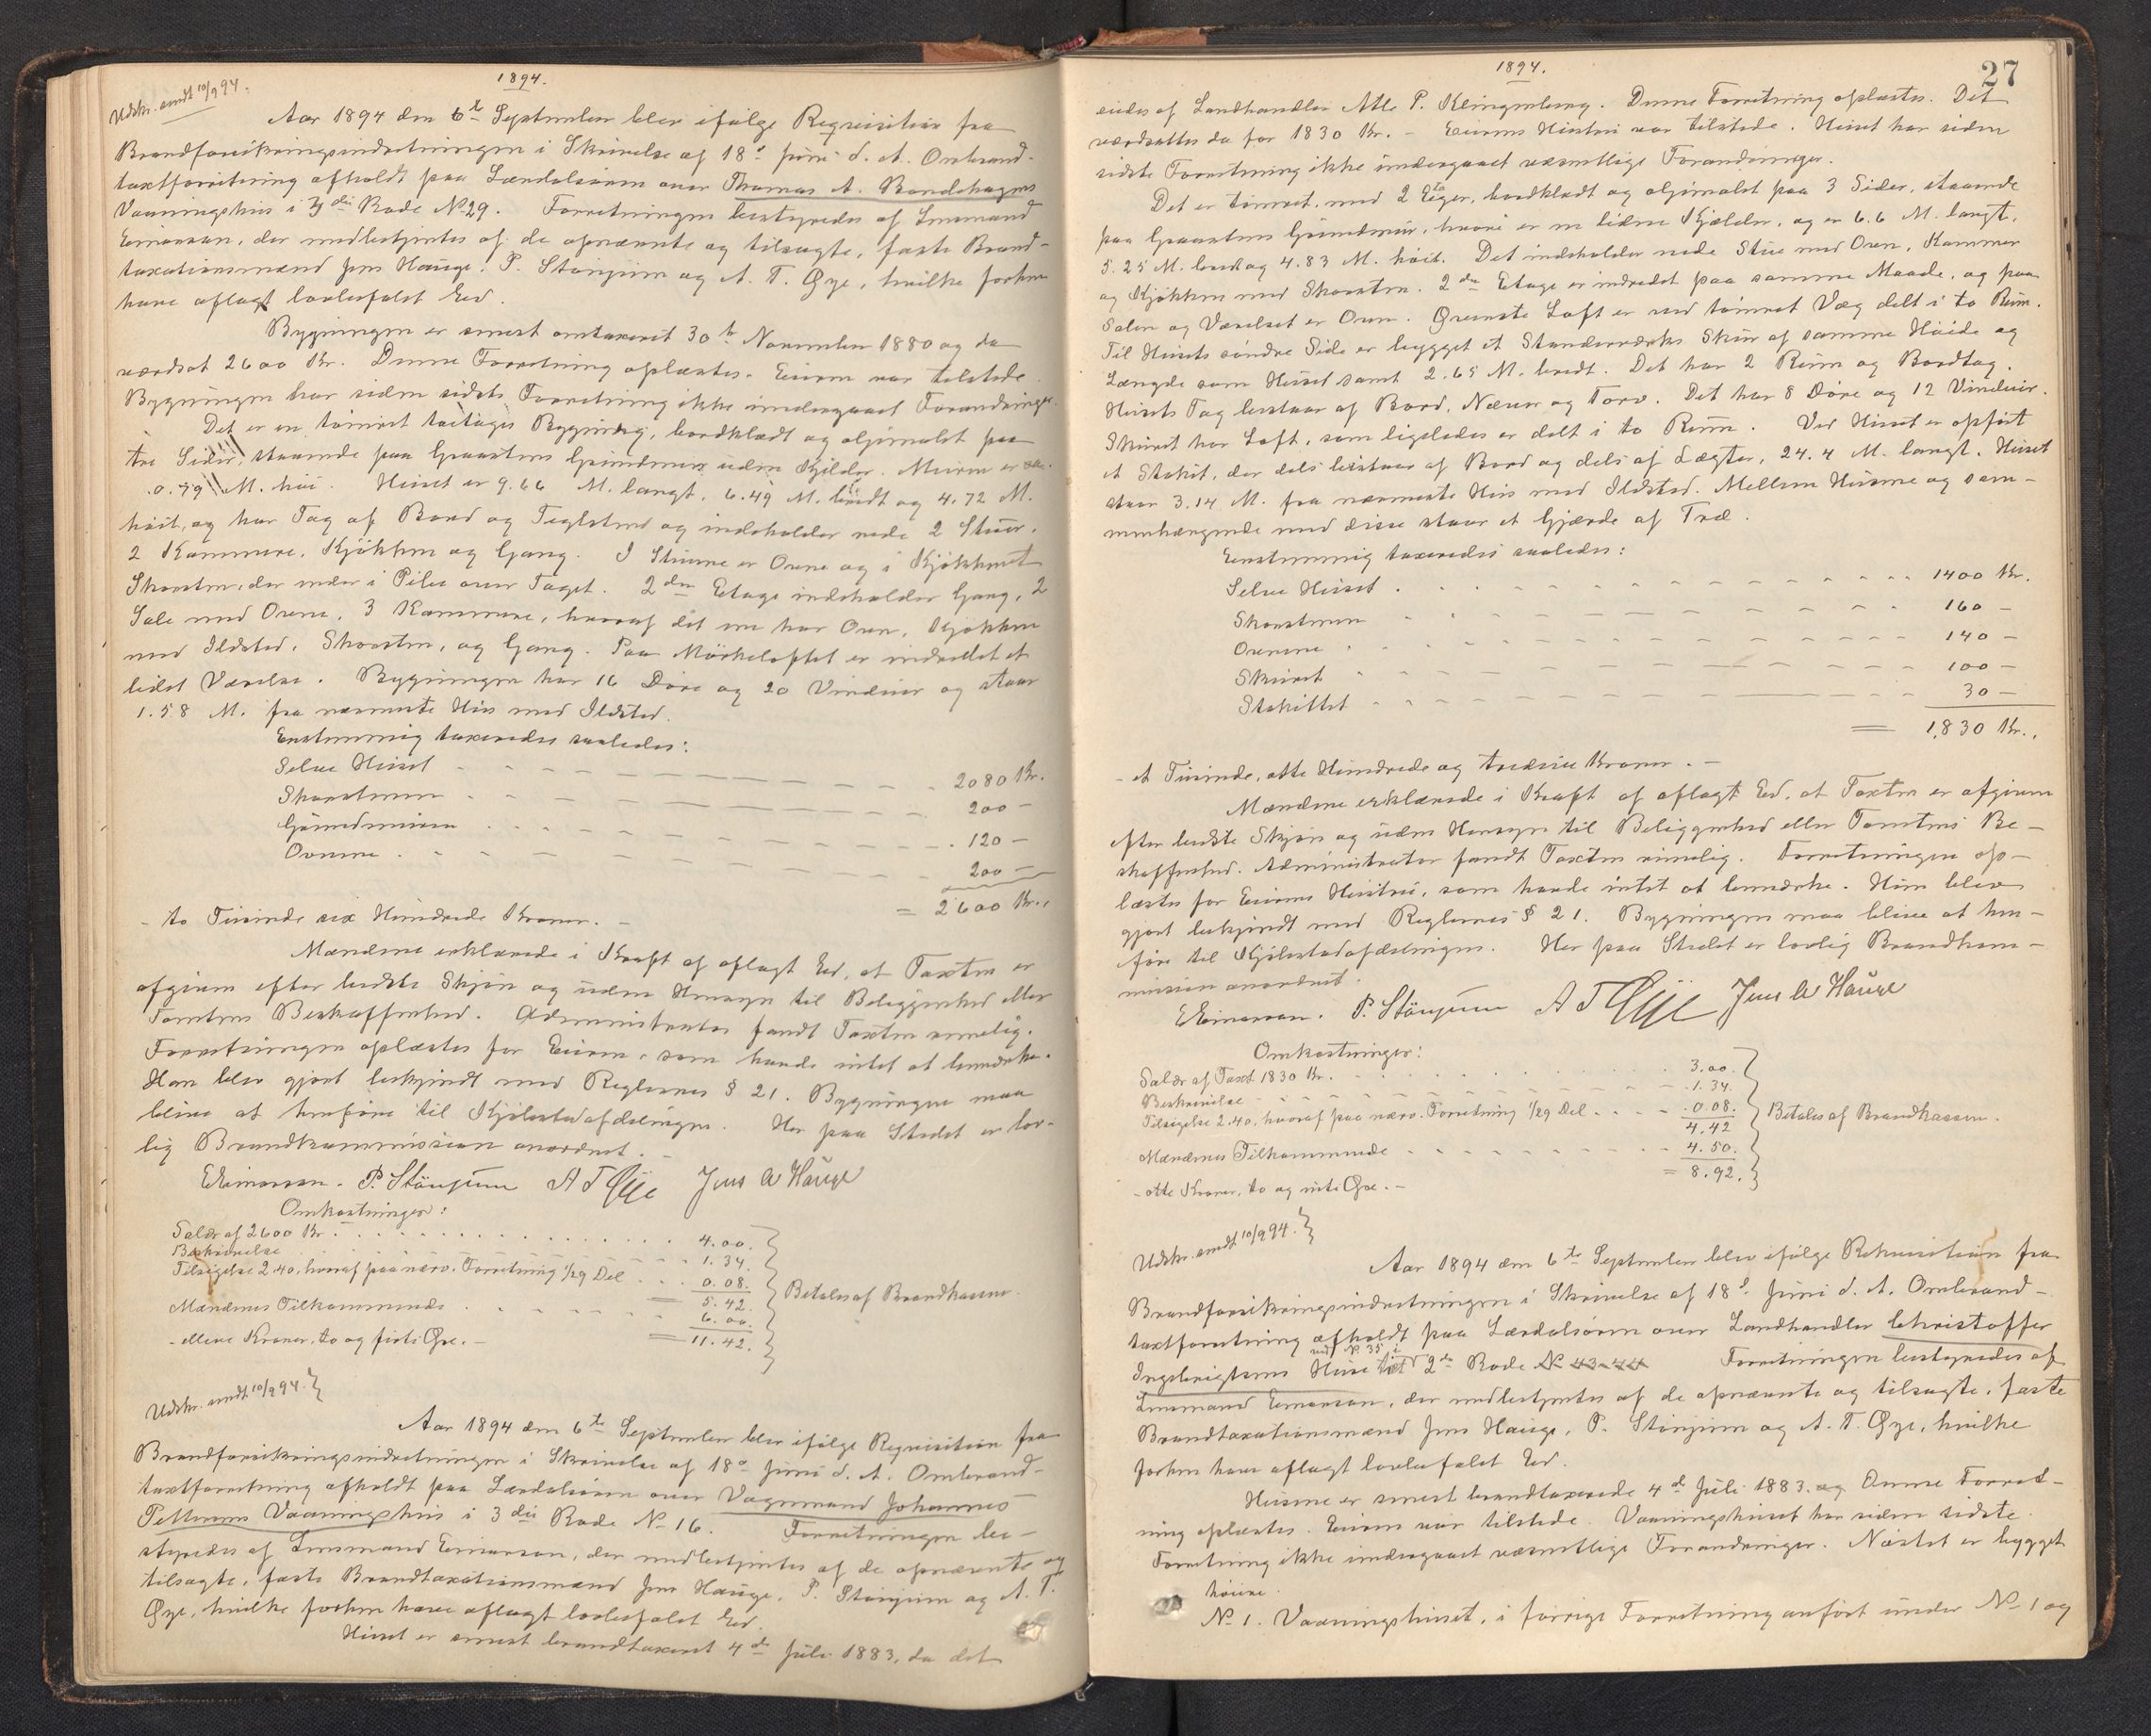 1894.
Udskr. sendt 10/9 94.
Aar 1894 den 6te September blev ifølge Requisition fra
Brandforsikringsindretningen i Skrivelse af 18de Juni d. A. Ombrand-
taxtforretning afholdt paa Lærdalsøren over Thomas A. Bondehagens
Vaaningshus i 3die Rode No 29. Forretningen bestyredes af Lensmand
Einarsen, der medbetjentes af de opnævnte og tilsagte, faste Brand-
taxationsmænd Jens Hauge, P. Stönjum og A. T. Øye, hvilke forhen
have aflagt lovbefalet Eed.
Bygningen er senest omtaxeret 30te November 1880 og da
værdsat 2600 Kr. Denne Forretning oplæstes. Eieren var tilstede.
Bygningen har siden sidste Forretning ikke undergaaet Forandringer.
Det er en tømret toetages Bygning, bordklædt og oljemalet paa
tre Sider, staaende paa Graastens Grundmur uden Kjelder. Muren er
0.79 M. høi. Huset er 9.66 M. langt, 6.49 M. bredt og 4.72 M.
høit, og har Tag af Bord og Teglsten og indeholder nede 2 Stuer,
2 Kammere, Kjøkken og Gang. I Stuerne er Ovne og i Kjøkkenet
Skorsten, der ender i Pibe over Taget. 2den Etage indeholder Gang, 2
Sale med Ovne, 3 Kammere, hvoraf det ene har Ovn, Kjøkken
med Ildsted, Skorsten, og Gang. Paa Mørkeloftet er indredet et
lidet Værelse. Bygningen har 16 Døre og 20 Vinduer og staar
1.58 M. fra nærmeste Hus med Ildsted.
Enstemmig taxeredes saaledes:
Selve Huset 2080 Kr.
Skorstenen 200 —
Grundmuren 120 —
Ovnene 200 —
= 2600 Kr.,
- to Tusinde sex Hundrede Kroner. -
Mændene erklærede i Kraft af aflagt Eed, at Taxten er
afgiven efter bedste Skjøn og uden Hensyn til Beliggenhed eller
Tomtens Beskaffenhed. Administrator fandt Taxten rimelig.
Forretningen oplæstes for Eieren, som havde intet at bemærke.
Han blev gjort bekjendt med Reglernes § 21. Bygningen maa
blive at henføre til Kjøbstadafdelingen. Her paa Stedet er lov-
lig Brandkommission anordnet. -
E Einarsen. P. Stönjum A T Øye Jens A Hauge
Omkostninger:
Salær af 2600 Kr. 4.00.
Beskrivelse 1.34.
Tilsigelse 2.40, hvoraf paa nærv. Forretning 1/29 Del 0.08.
= 5.42. Betales af Brandkassen.
Mændenes Tilkommende 6.00.
- elleve Kroner, to og firti Øre. - = 11.42.
Udskr. sendt 10/9 94.
Aar 1894 den 6te September blev ifølge Requisition fra
Brandforsikringsindretningen i Skrivelse af 18de Juni d. A. Ombrand-
taxtforretning afholdt paa Lærdalsøren over Vognmand Johannes
Pettersens Vaaningshus i 3die Rode No 16. Forretningen be-
styredes af Lensmand Einarsen, der medbetjentes af de opnævnte og
tilsagte, faste Brandtaxationsmænd Jens Hauge, P. Stönjum og A. T.
Øye, hvilke forhen have aflagt lovbefalet Eed.
Huset er senest brandtaxeret 4de Juli 1883, da det
1894.
27
eiedes af Landhandler Atle P. Klingenberg. Denne Forretning oplæstes. Det
værdsattes da for 1830 Kr. - Eierens Hustru var tilstede. Huset har siden
sidste Forretning ikke undergaaet væsentlige Forandringer.
Det er tømret, med 2 Etager, bordklædt og oljemalet paa 3 Sider, staaende
paa Graastens Grundmur, hvori er en liden Kjælder, og er 6.6 M. langt,
5.25 M. bredt og 4.83 M. høit. Det indeholder nede Stue med Ovn, Kammer
og Kjøkken med Skorsten. 2den Etage er indredet paa samme Maade, og paa
Salen og Værelset er Ovn. Øverste Loft er ved tømret Væg delt i to Rum.
Til Husets søndre Side er bygget et Stænderværks Skur af samme Høide og
Længde som Huset samt 2.65 M. bredt. Det har 2 Rum og Bordtag.
Husets Tag bestaar af Bord, Næver og Torv. Det har 8 Døre og 12 Vinduer.
Skuret har Loft, som ligeledes er delt i to Rum. Ved Huset er opført
et Stakit, der dels bestaar af Bord og dels af Lægter, 24.4 M. langt. Huset
staar 3.14 M. fra nærmeste Hus med Ildsted. Mellem Husene og sam-
menhængende med disse staar et Gjærde af Træ.
Eenstemmig taxeredes saaledes:
Selve Huset 1400 Kr.
Skorstenen 160 —
Ovnene 140 —
Skuret 100 —
Stakittet 30 —
= 1,830 Kr.,
- et Tusinde, otte Hundrede og tredive Kroner. -
Mændene erklærede i Kraft af aflagt Eed, at Taxten er afgiven
efter bedste Skjøn og uden Hensyn til Beliggenhed eller Tomtens Be-
skaffenhed. Administrator fandt Taxten rimelig. Forretningen op-
læstes for Eierens Hustru, som havde intet at bemærke. Hun blev
gjort bekjendt med Reglernes § 21. Bygningen maa blive at hen-
føre til Kjøbstadafdelingen. Her paa Stedet er lovlig Brandkom-
mission anordnet.
E Einarsen. P. Stönjum A T Øye Jens A Hauge
Omkostninger:
Salær af Taxt 1830 Kr. 3.00.
Beskrivelse 1.34.
Tilsigelse 2.40, hvoraf paa nærv. Forretning 1/29 Del 0.08.
4.42 Betales af Brandkassen.
Mændenes Tilkommende 4.50.
- otte Kroner, to og niti Øre. - = 8.92.
Udskr. sendt 10/9 94.
Aar 1894 den 6te September blev ifølge Rekvisition fra
Brandforsikringsindretningen i Skrivelse af 18de Juni d. A. Ombrand-
taxtforretning afholdt paa Lærdalsøren over Landhandler Christoffer
Ingebrigtsens Huse i 2den Rode No 43-44 Forretningen bestyredes af
med No 35
Lensmand Einarsen, der medbetjentes af de opnævnte og tilsagte, faste
Brandtaxationsmænd Jens Hauge, P. Stönjum og A. T. Øye, hvilke
forhen have aflagt lovbefalet Eed.
Husene er senest brandtaxerede 4de Juli 1883. og Denne Forret-
ning oplæstes. Eieren var tilstede. Vaaningshuset har siden sidste
Forretning ikke undergaaet væsentlige Forandringer. Næstet er bygget
høiere.
No 1. Vaaningshuset, i forrige Forretning anført under No 1 og